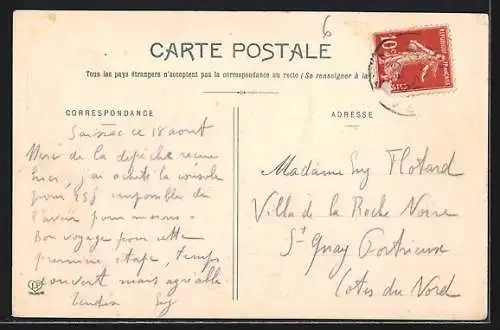 6
CARTE POSTALE
Tous les pays étrangers n'acceptent pas la correspondance au recto (Se renseigner à la
CORRESPONDANCE
ce 18 aout
Merci de la dépêche recue
hier, j'ai acheté la console
pour 255 impossible de
l'avoir pour moins
Bon voyage pour cette
première étape, temps
couvert mais agréable
Eug
ADRESSE
Madame Eug Flotard
Villa de la Roche Noire
St Quay Portrieux
Cotes du Nord
10c